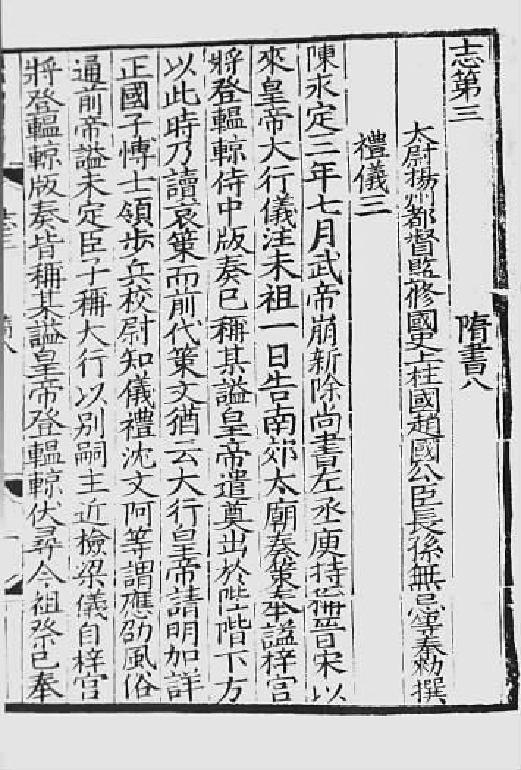 志第三　隋書八
太尉揚州都督監脩國史上柱國趙國公臣長孫無忌等奉勑撰
禮儀三
陳永定三年七月武帝崩新除尚書左丞庾持稱晉宋以
來皇帝大行儀注未祖一日告南郊太廟奏策奉謚梓宮
將登轀輬侍中版奏已稱某謚皇帝遣奠出於陛階下方
以此時乃讀哀策而前代策文猶云大行皇帝請明加詳
正國子博士領步兵校尉知儀禮沈文阿等謂應劭風俗
通前帝謚未定臣子稱大行以別嗣主近檢梁儀自梓宮
將登轀輬版奏皆稱某謚皇帝登轀輬伏尋今祖祭已奉